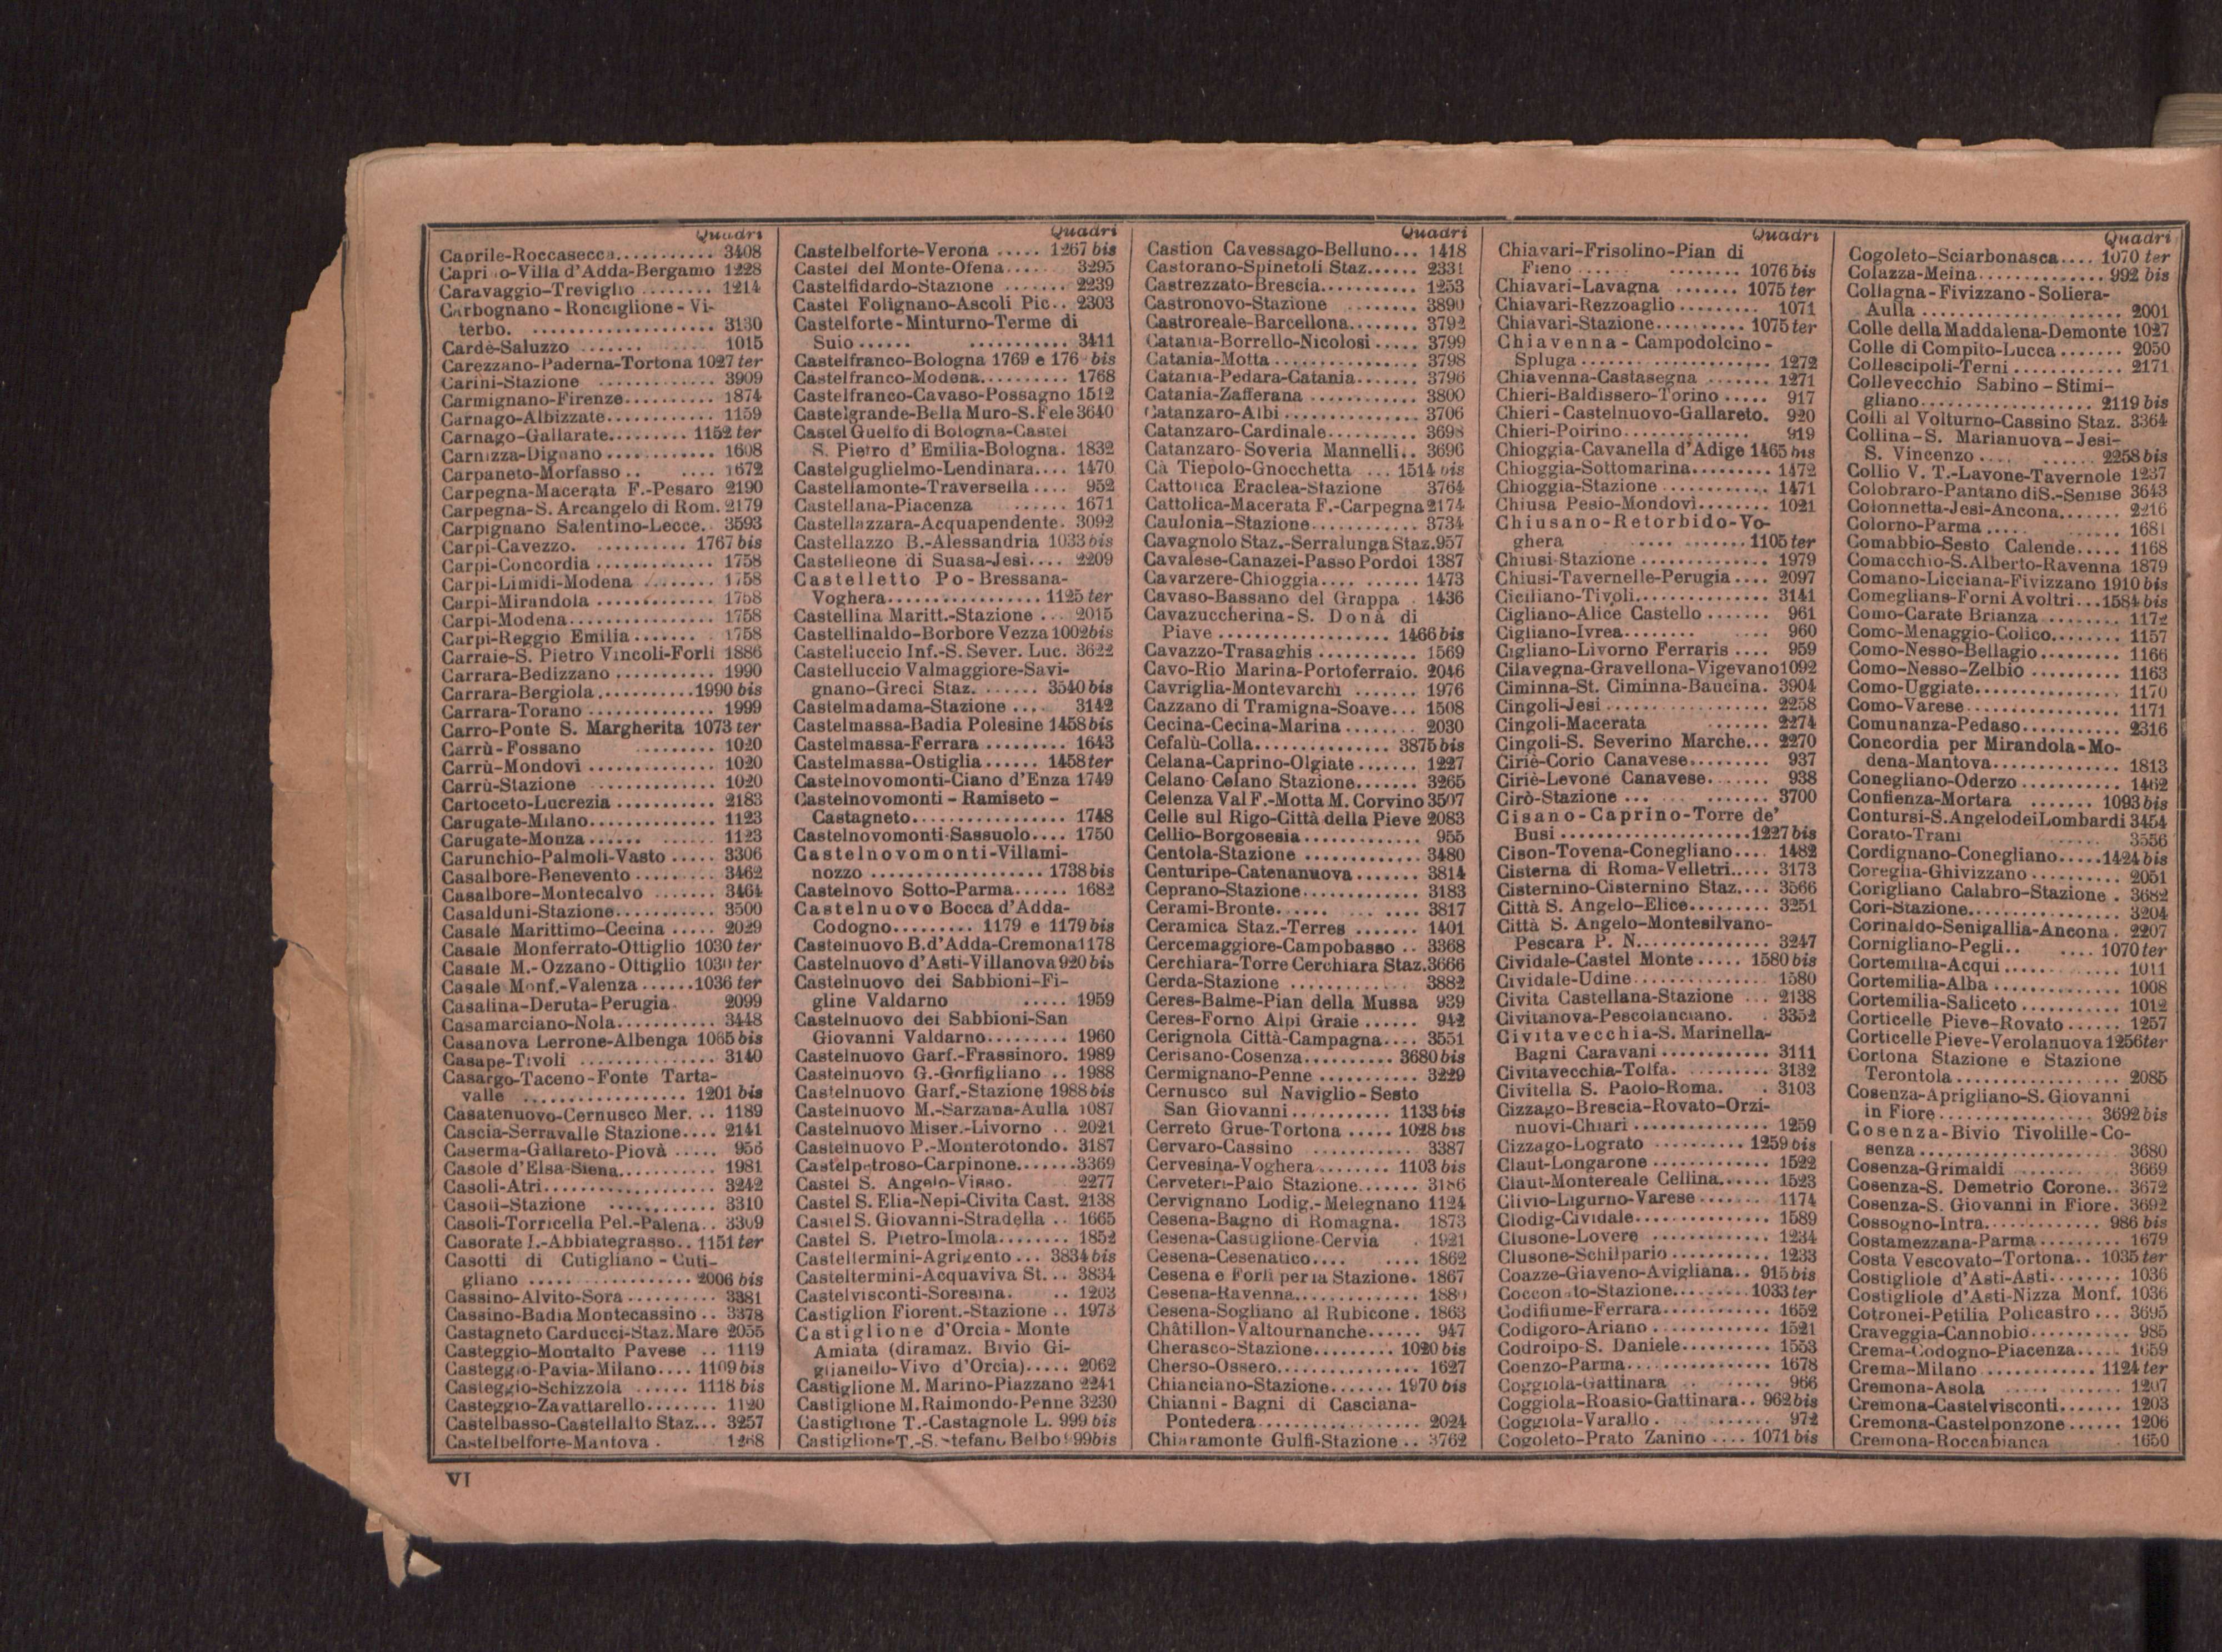 Quadri
Caprile-Roccasecca........... 3408
Villa d'Adda-Bergamo 1228
Caravaggio-Treviglio ........ 1214
Carbognano - Ronciglione - Vi-
terbo. .................... 3130
Cardè-Saluzzo ....... 1015
Carezzano-Paderna-Tortona 1027 ter
Carini-Stazione ............. 3909
Carmignano-Firenze.......... 1874
Carnago-Albizzate............ 1159
Carnago-Gallarate......... 1152 ter
Carnizza-Dignano ............ 1608
Carpaneto-Morfasso .. .... 1672
Carpegna-Macerata F.-Pesaro 2190
Carpegna-S. Arcangelo di Rom. 2179
Carpignano Salentino-Lecce. . 3593
Carpi-Cavezzo. .......... 1767 bis
Carpi-Concordia ............. 1758
Carpi-Limidi-Modena ........ 1758
Carpi-Mirandola ............. 1758
Carpi-Modena................ 1758
Carpi-Reggio Emilia....... . 1758
Carraie-S. Pietro Vincoli-Forlì 1886
Carrara-Bedizzano ........... 1990
Carrara-Bergiola ..........1990 bis
Carrara-Torano .............. 1999
Carro-Ponte S. Margherita 1073 ter
Carrù - Fossano ......... 1020
Carrù-Mondovì .............. 1020
Carrù-Stazione ............. 1020
Cartoceto-Lucrezia ........... 2183
Carugate-Milano.............. 1123
Carugate-Monza...... ...... 1123
Carunchio-Palmoli-Vasto ..... 3306
Casalbore-Benevento ......... 3462
Casalbore-Montecalvo ....... 3464
Casalduni-Stazione........... 3500
Casale Marittimo-Cecina ..... 2029
Casale Monferrato-Ottiglio 1030 ter
Casale M.-Ozzano - Ottiglio 1030 ter
Casale Monf.-Valenza ......1036 ter
Casalina-Deruta-Perugia. 2099
Casamarciano-Nola........... 3448
Casanova Lerrone-Albenga 1065 bis
Casape-Tivoli ............... 3140
Casargo-Taceno-Fonte Tarta-
valle .................. 1201 bis
Casatenuovo-Cernusco Mer. .. 1189
Cascia-Serravalle Stazione.... 2141
Caserma-Gallareto-Piovà ..... 956
Casole d'Elsa-Siena........... 1981
Casoli-Atri................... 3242
Casoli-Stazione ............ 3310
Casoli-Torricella Pel.-Palena.. 3309
Casorate I.-Abbiategrasso.. 1151 ter
Casotti di Cutigliano - Cuti-
gliano ..... ............. 2006 bis
Cassino-Alvito-Sora .......... 3381
Cassino-Badia Montecassino .. 3378
Castagneto Carducci-Staz. Mare 2055
Casteggio-Montalto Pavese .. 1119
Casteggio-Pavia-Milano.... 1109 bis
Casteggio-Schizzola ...... 1118 bis
Casteggio-Zavattarello........ 1120
Castelbasso-Castellalto Staz... 3257
Castelbelforte-Mantova . 1268
Quadri
Castelbelforte-Verona ..... 1267 bis
Castel del Monte-Ofena..... 3295
Castelfidardo-Stazione ....... 2239
Castel Folignano-Ascoli Pic.. 2303
Castelforte-Minturno-Terme di
Suio...... ........... 3411
Castelfranco-Bologna 1769 e 176 bis
Castelfranco-Modena.......... 1768
Castelfranco-Cavaso-Possagno 1512
Castelgrande-Bella Muro-S. Fele 3640
Castel Guelfo di Bologna-Castel
S. Pietro d'Emilia-Bologna. 1832
Castelguglielmo-Lendinara.... 1470
Castellamonte-Traversella .... 952
Castellana-Piacenza ...... 1671
Castellazzara-Acquapendente. 3092
Castellazzo B.-Alessandria 1033 bis
Castelleone di Suasa-Jesi.... 2209
Castelletto Po - Bressana-
Voghera................. 1125 ter
Castellina Maritt.-Stazione ... 2015
Castellinaldo-Borbore Vezza 1002bis
Castelluccio Inf.-S. Sever. Luc. 3622
Castelluccio Valmaggiore-Savi-
gnano-Greci Staz. ...... 3540 bis
Castelmadama-Stazione .... 3142
Castelmassa-Badia Polesine 1458bis
Castelmassa-Ferrara ......... 1643
Castelmassa-Ostiglia ...... 1458ter
Castelnovomonti-Ciano d'Enza 1749
Castelnovomonti - Ramiseto -
Castagneto................ 1748
Castelnovomonti-Sassuolo.... 1750
Castelnovomonti-Villami-
nozzo .................. 1738bis
Castelnovo Sotto-Parma...... 1682
Castelnuovo Bocca d'Adda-
Codogno......... 1179 e 1179bis
Castelnuovo B.d'Adda-Cremona1178
Castelnuovo d'Asti-Villanova 920 bis
Castelnuovo dei Sabbioni-Fi-
gline Valdarno ..... 1959
Castelnuovo dei Sabbioni-San
Giovanni Valdarno......... 1960
Castelnuovo Garf.-Frassinoro. 1989
Castelnuovo G.-Gorfigliano .. 1988
Castelnuovo Garf.-Stazione 1988bis
Castelnuovo M.-Sarzana-Aulla 1087
Castelnuovo Miser.-Livorno .. 2021
Castelnuovo P.-Monterotondo. 3187
Castelpetroso-Carpinone.......3369
Castel S. Angelo-Visso. 2277
Castel S. Elia-Nepi-Civita Cast. 2138
Castel S. Giovanni-Stradella .. 1665
Castel S. Pietro-Imola........ 1852
Casteltermini-Agrigento ... 3834bis
Casteltermini-Acquaviva St. .. 3834
Castelvisconti-Soresina. .. 1203
Castiglion Fiorent.-Stazione .. 1973
Castiglione d'Orcia - Monte
Amiata (diramaz. Bivio Gi-
glianello-Vivo d'Orcia)..... 2062
Castiglione M. Marino-Piazzano 2241
Castiglione M.Raimondo-Penne 3230
Castiglione T.-Castagnole L. 999 bis
Castiglione T.-S. Stefano Belbo 99bis
Quadri
Castion Cavessago-Belluno... 1418
Castorano-Spinetoli Staz...... 2331
Castrezzato-Brescia........... 1253
Castronovo-Stazione ........ 3890
Castroreale-Barcellona........ 3792
Catania-Borrello-Nicolosi ..... 3799
Catania-Motta ............... 3798
Catania-Pedara-Catania....... 3796
Catania-Zafferana ............ 3800
Catanzaro-Albi ............... 3706
Catanzaro-Cardinale.......... 3698
Catanzaro-Soveria Mannelli... 3696
Cà Tiepolo-Gnocchetta ... 1514 bis
Cattolica Eraclea-Stazione 3764
Cattolica-Macerata F.-Carpegna 2174
Caulonia-Stazione............ 3734
Cavagnolo Staz.-Serralunga Staz.957
Cavalese-Canazei-Passo Pordoi 1387
Cavarzere-Chioggia.... ...... 1473
Cavaso-Bassano del Grappa . 1436
Cavazuccherina-S. Donà di
Piave .................. 1466 bis
Cavazzo-Trasaghis ........... 1569
Cavo-Rio Marina-Portoferraio. 2046
Cavriglia-Montevarchi ....... 1976
Cazzano di Tramigna-Soave... 1508
Cecina-Cecina-Marina ........ 2030
Cefalù-Colla.............. 3875 bis
Celana-Caprino-Olgiate....... 1227
Celano Celano Stazione....... 3265
Celenza Val F.-Motta M. Corvino 3507
Celle sul Rigo-Città della Pieve 2083
Cellio-Borgosesia ............ 955
Centola-Stazione ............ 3480
Centuripe-Catenanuova....... 3814
Ceprano-Stazione............ 3183
Cerami-Bronte...... ... .... 3817
Ceramica Staz.-Terres ....... 1401
Cercemaggiore-Campobasso .. 3368
Cerchiara-Torre Cerchiara Staz.3666
Cerda-Stazione ............. 3882
Ceres-Balme-Pian della Mussa 939
Ceres-Forno Alpi Graie ...... 942
Cerignola Città-Campagna.... 3551
Cerisano-Cosenza.......... 3680 bis
Cermignano-Penne ........... 3229
Cernusco sul Naviglio-Sesto
San Giovanni........... 1133 bis
Cerreto Grue-Tortona ..... 1028 bis
Cervaro-Cassino ........... 3387
Cervesina-Voghera........ 1103 bis
Cerveteri-Palo Stazione....... 3186
Cervignano Lodig.-Melegnano 1124
Cesena-Bagno di Romagna. 1873
Cesena-Castiglione-Cervia . 1921
Cesena-Cesenatico.... .... 1862
Cesena e Forlì per la Stazione. 1867
Cesena-Ravenna.............. 1880
Cesena-Sogliano al Rubicone . 1863
Châtillon-Valtournanche...... 947
Cherasco-Stazione......... 1020 bis
Cherso-Ossero............... 1627
Chianciano-Stazione....... 1970 bis
Chianni - Bagni di Casciana-
Pontedera................. 2024
Chiaramonte Gulfi-Stazione .. 3762
Quadri
Chiavari-Frisolino-Pian di
Fieno ..... ........ 1076 bis
Chiavari-Lavagna ....... 1075 ter
Chiavari-Rezzoaglio ......... 1071
Chiavari-Stazione.......... 1075 ter
Chiavenna - Campodolcino -
Spluga..................... 1272
Chiavenna-Castasegna ....... 1271
Chieri-Baldissero-Torino ..... 917
Chieri - Castelnuovo-Gallareto. 920
Chieri-Poirino.............. 919
Chioggia-Cavanella d'Adige 1465 bis
Chioggia-Sottomarina......... 1472
Chioggia-Stazione ............ 1471
Chiusa Pesio-Mondovì........ 1021
Chiusano-Retorbido-Vo-
ghera .... .......1105 ter
Chiusi-Stazione .............. 1979
Chiusi-Tavernelle-Perugia .... 2097
Ciciliano-Tivoli............... 3141
Cigliano-Alice Castello ....... 961
Cigliano-Ivrea........ .... 960
Cigliano-Livorno Ferraris .... 959
Cilavegna-Gravellona-Vigevano1092
Ciminna-St. Ciminna-Baucina. 3904
Cingoli-Jesi ................. 2258
Cingoli-Macerata ....... 2274
Cingoli-S. Severino Marche... 2270
Ciriè-Corio Canavese......... 937
Ciriè-Levone Canavese....... 938
Cirò-Stazione ... ........ 3700
Cisano-Caprino-Torre de'
Busi ....................1227 bis
Cison-Tovena-Conegliano.... 1482
Cisterna di Roma-Velletri..... 3173
Cisternino-Cisternino Staz.... 3566
Città S. Angelo-Elice......... 3251
Città S. Angelo-Montesilvano-
Pescara P. N.............. 3247
Cividale-Castel Monte ..... 1580 bis
Cividale-Udine............... 1580
Civita Castellana-Stazione ... 2138
Civitanova-Pescolanciano. . 3352
Civitavecchia-S. Marinella-
Bagni Caravani ............ 3111
Civitavecchia-Tolfa. ......... 3132
Civitella S. Paolo-Roma. . 3103
Cizzago-Brescia-Rovato-Orzi-
nuovi-Chiari ............... 1259
Cizzago-Lograto .......... 1259 bis
Claut-Longarone ............. 1522
Claut-Montereale Cellina...... 1523
Clivio-Ligurno-Varese ........ 1174
Clodig-Cividale............... 1589
Clusone-Lovere ............. 1234
Clusone-Schilpario ........... 1233
Coazze-Giaveno-Avigliana.. 915 bis
Stazione.........1033 ter
Codifiume-Ferrara............ 1652
Codigoro-Ariano ............. 1521
Codroipo-S. Daniele.......... 1553
Coenzo-Parma............... 1678
Coggiola-Gattinara .. ...... 966
Coggiola-Roasio-Gattinara.. 962 bis
Coggiola-Varallo . ........ 972
Cogoleto-Prato Zanino .... 1071 bis
Quadri
Cogoleto-Sciarbonasca.... 1070 ter
Colazza-Meina............. 992 bis
Collagna - Fivizzano - Soliera-
Aulla ..................... 2001
Colle della Maddalena-Demonte 1027
Colle di Compito-Lucca ....... 2050
Collescipoli-Terni ............ 2171
Collevecchio Sabino - Stimi-
gliano.................. 2119 bis
Colli al Volturno-Cassino Staz. 3364
Collina - S. Marianuova - Jesi-
S. Vincenzo .... ...... 2258bis
Collio V. T.-Lavone-Tavernole 1237
Colobraro-Pantano di S.-Senise 3643
Colonnetta-Jesi-Ancona....... 2216
Colorno-Parma ..... ...... 1681
Comabbio-Sesto Calende..... 1168
Comacchio-S.Alberto-Ravenna 1879
Comano-Licciana-Fivizzano 1910 bis
Comeglians-Forni Avoltri...1584 bis
Como-Carate Brianza ........ 1172
Como-Menaggio-Colico........ 1157
Como-Nesso-Bellagio......... 1166
Como-Nesso-Zelbio .......... 1163
Como-Uggiate............... 1170
Como-Varese................. 1171
Comunanza-Pedaso........... 2316
Concordia per Mirandola - Mo-
dena-Mantova.............. 1813
Conegliano-Oderzo ........... 1462
Confienza-Mortara ....... 1093 bis
Contursi-S.Angelo dei Lombardi 3454
Corato-Trani ..... 3556
Cordignano-Conegliano.....1424 bis
Coreglia-Ghivizzano .......... 2051
Corigliano Calabro-Stazione . 3682
Cori-Stazione................ 3204
Corinaldo-Senigallia-Ancona . 2207
Cornigliano-Pegli.. .... 1070 ter
Cortemilia-Acqui ............ 1011
Cortemilia-Alba .............. 1008
Cortemilia-Saliceto ........... 1012
Corticelle Pieve-Rovato ...... 1257
Corticelle Pieve-Verolanuova 1256ter
Cortona Stazione e Stazione
Terontola ................. 2085
Cosenza-Aprigliano-S. Giovanni
in Fiore ................. 3692 bis
Cosenza-Bivio Tivolille-Co-
senza ..................... 3680
Cosenza-Grimaldi ........... 3669
Cosenza-S. Demetrio Corone.. 3672
Cosenza-S. Giovanni in Fiore. 3692
Cossogno-Intra............. 986 bis
Costamezzana-Parma ......... 1679
Costa Vescovato-Tortona.. 1035 ter
Costigliole d'Asti-Asti........ 1036
Costigliole d'Asti-Nizza Monf. 1036
Cotronei-Petilia Policastro ... 3695
Craveggia-Cannobio........... 985
Crema-Codogno-Piacenza..... 1659
Crema-Milano ............ 1124 ter
Cremona-Asola ..... ....... 1207
Cremona-Castelvisconti....... 1203
Cremona-Castelponzone ...... 1206
Cremona-Roccabianca . 1650
VI